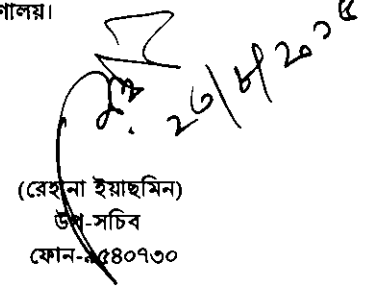 ণালয়।
২৩/৮/২০১৫
(রেহানা ইয়াছমিন)
উপ-সচিব
ফোন-৯৫৪০৭৩০